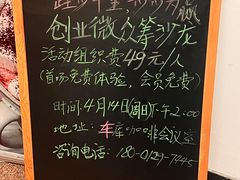 创业微众筹沙龙
活动组织费49元/人
(首场免费体验,会员免费)
时间:4月14日(周日)下午2:00
地址:车库咖啡会议室
咨询电话:180-0129-7445